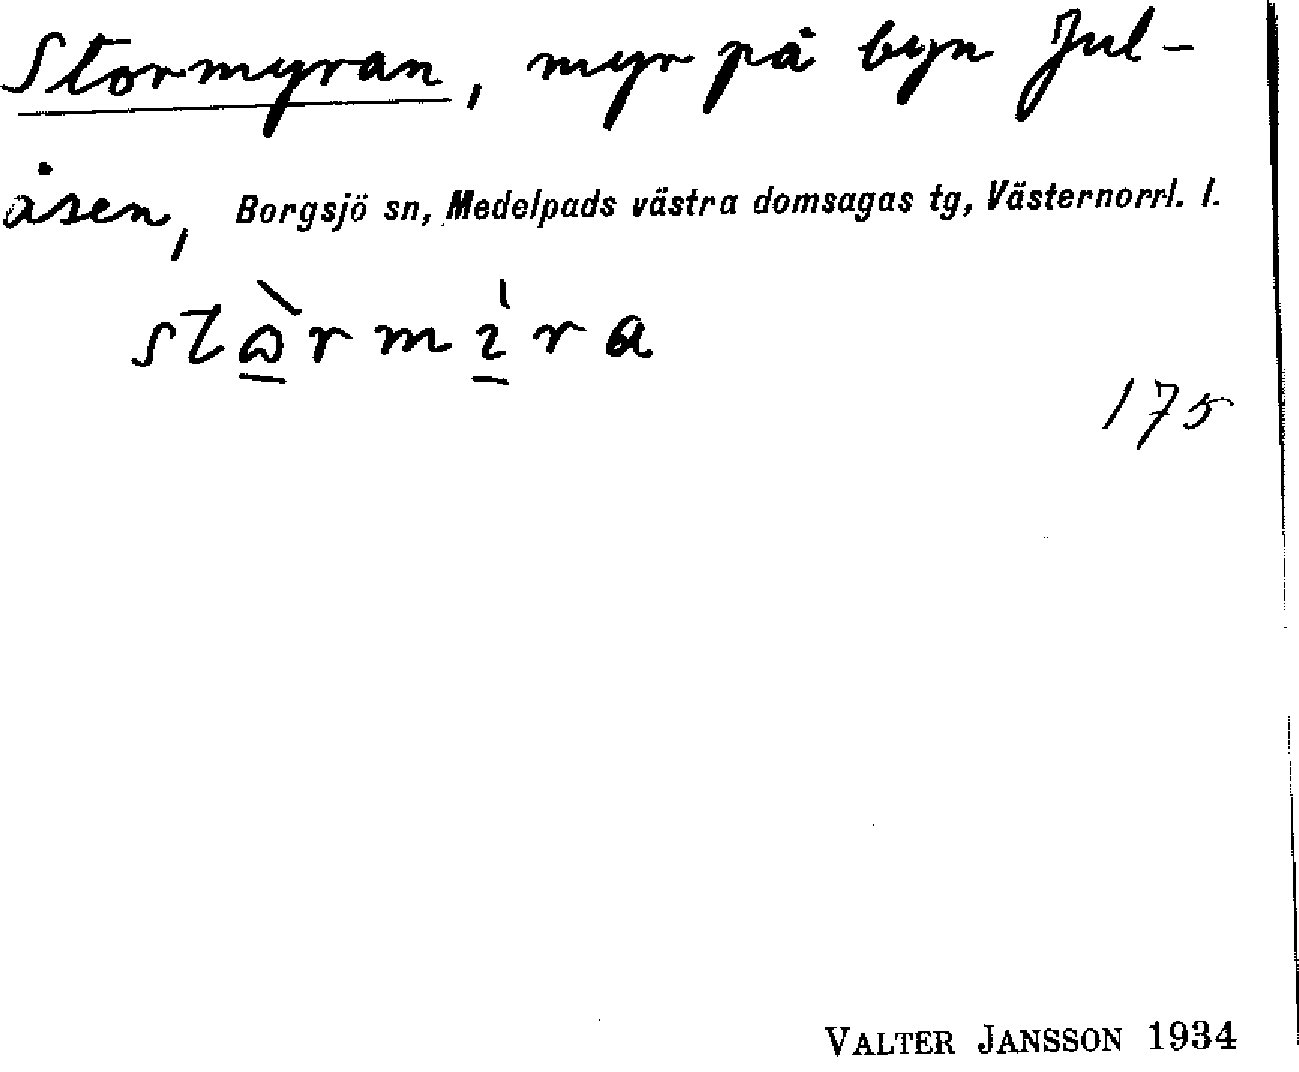 Stormyran, myr på byn Jul-
åsen, Borgsjö sn, Medelpads västra domsagas tg, Västernorrl. l.
175
VALTER JANSSON 1934